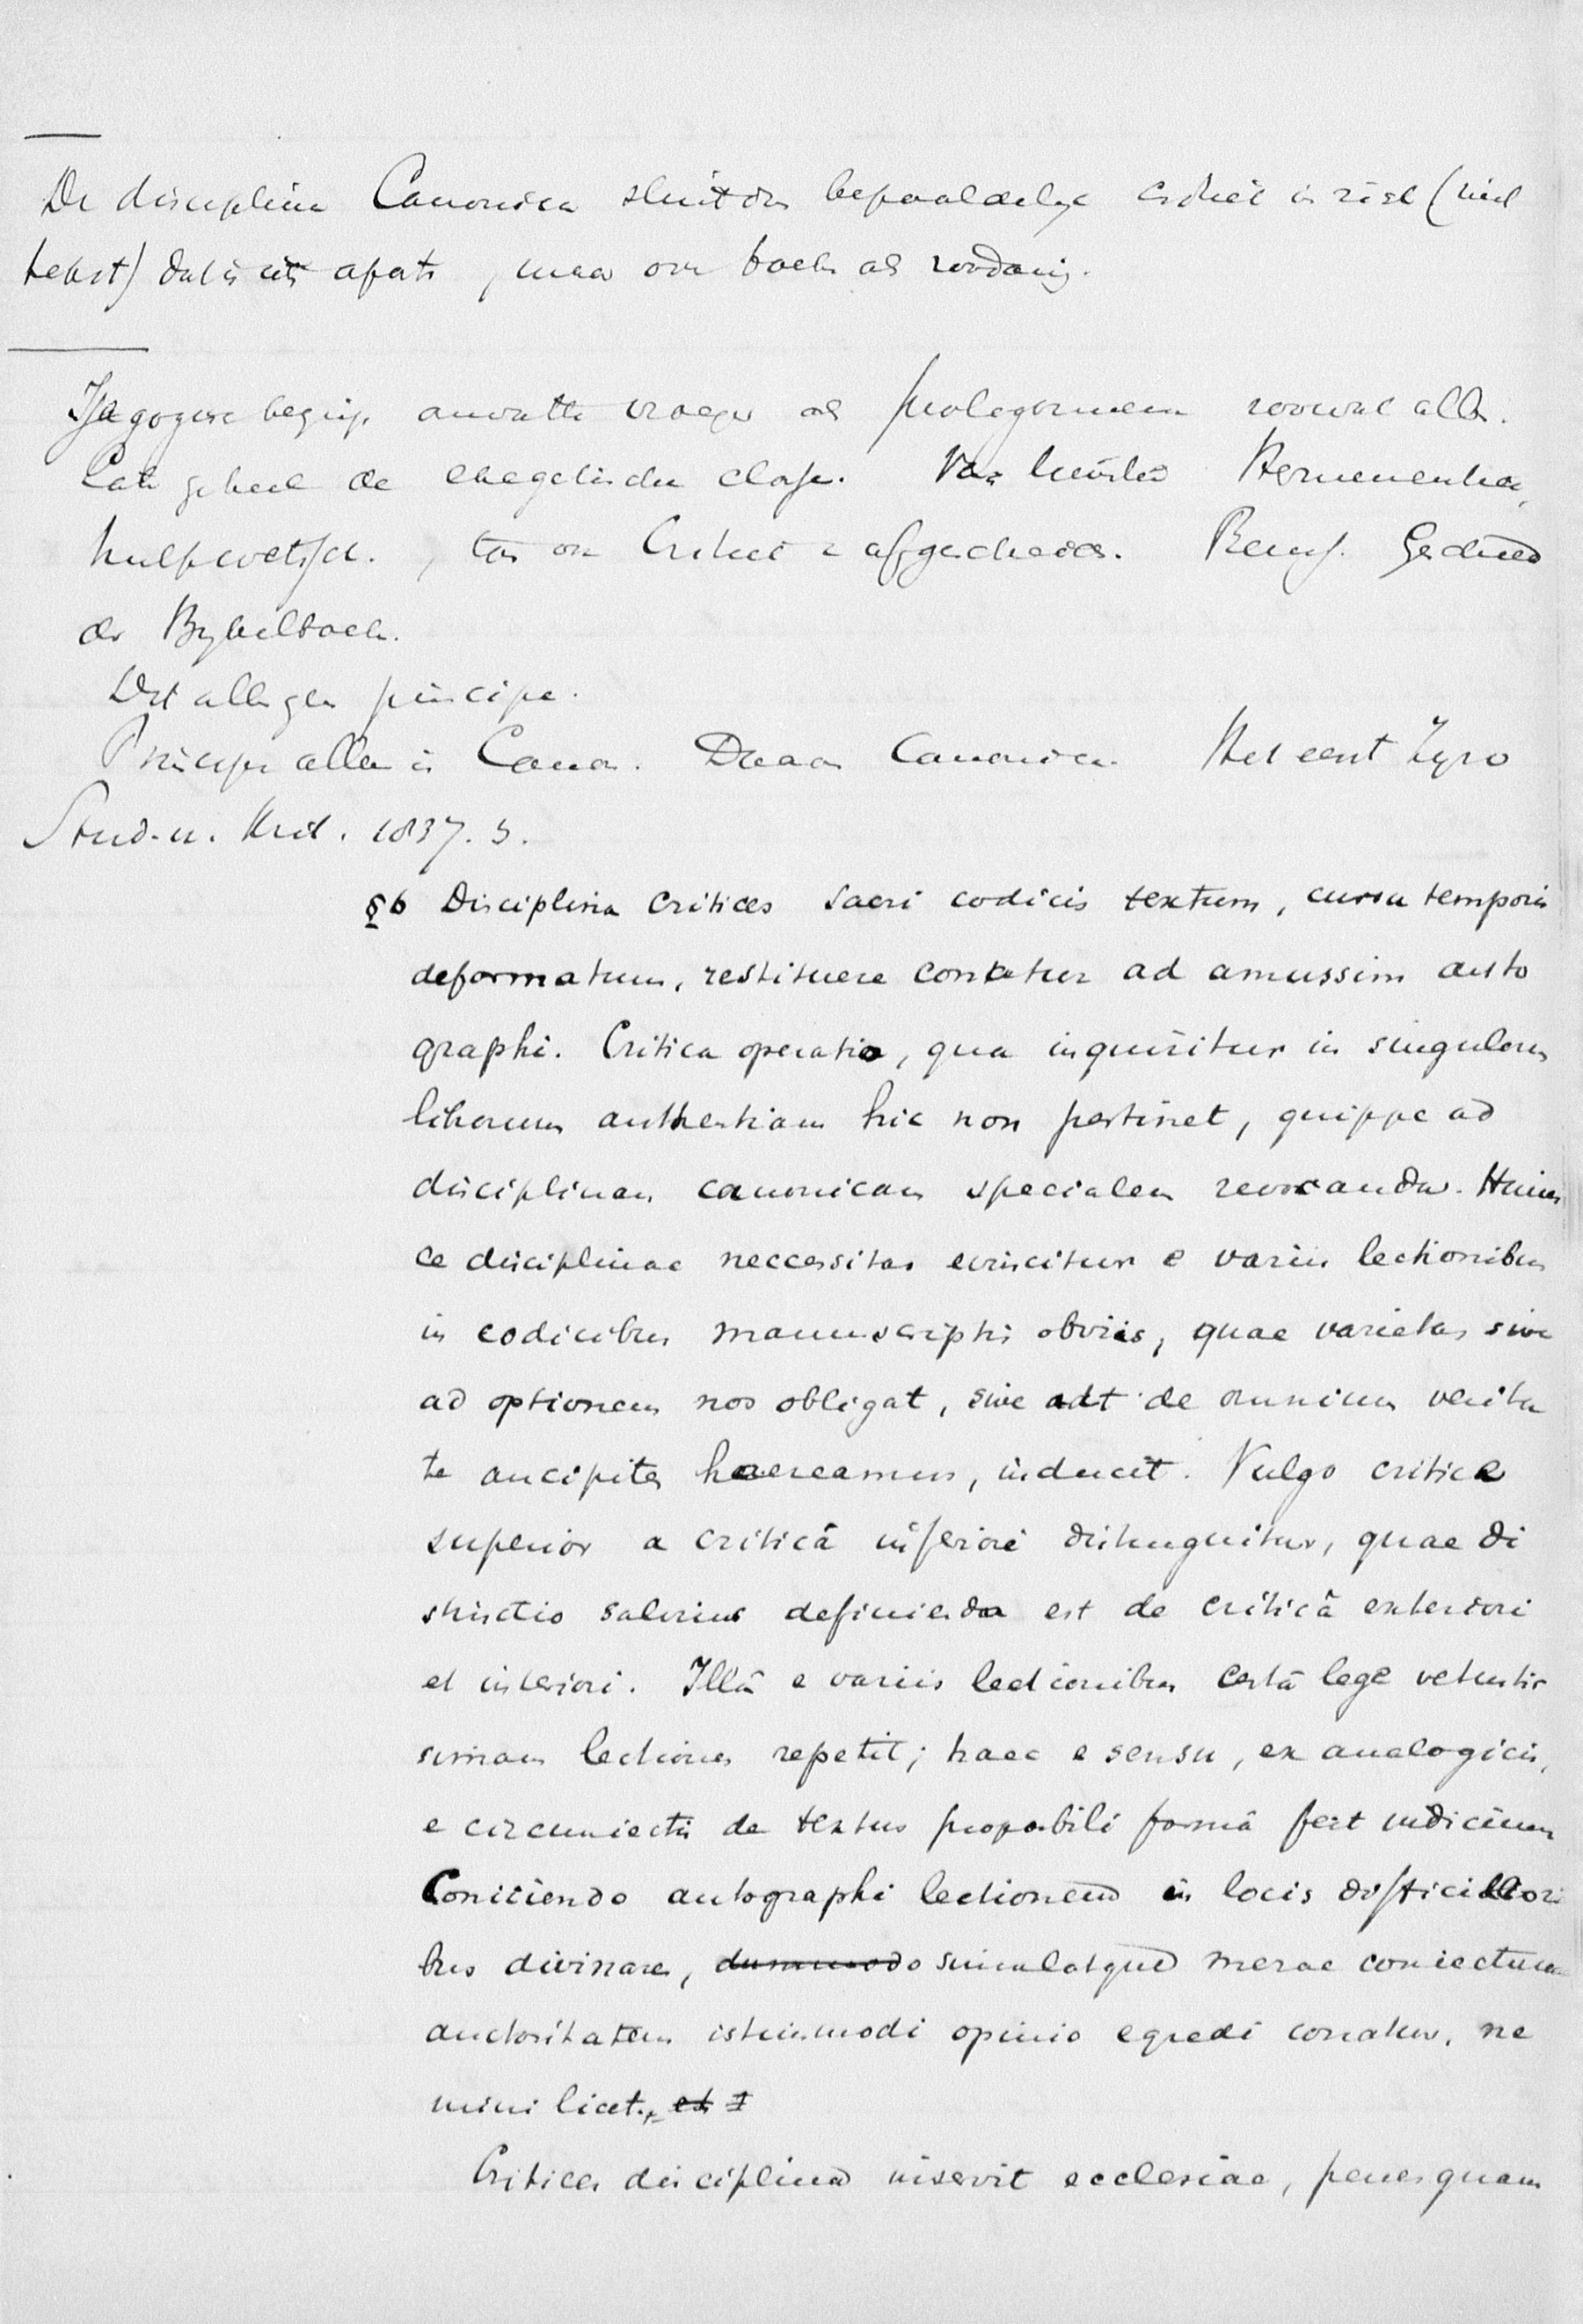 De disciplina Canonica sluit dus bepaaldelyk critiek in zich (niet
tekst) dat is iets aparts, maar over boek als zoodanig.
Isagogische begrip omvatte vroeger als prolegomena zoowat alles.
geheel de exegetische classe. Hermeneutica,
hulpwetsch., en Critiek afgescheiden. Reuss. Geschied
der Bybelboek.
Dit alles geen principe.
Principe alleen is Canon. Daarom Canonica. Het eerst Zyro
Stud. u. Krit. 1837. 3.
§6 Disciplina critices sacri codicis textum, cursu temporis
deformatum, restituere conatur ad amussim auto
graphi. Critica operatio, qua inquiritur in singulorum
librorum authentiam hic non pertinet, quippe ad
disciplinam canonicam specialem revocanda. Huius
ce disciplinae neccessitas evincitur e variis lectionibus
in codicibus manuscriptis obviis, quae varietas sive
ad optionem nos obligat, sive adt de omnium verita
te ancipites haereamus, inducit. Vulgo critica
superior a criticâ inferiori distinguitur, quae di
stinctio salerius definienda est de criticâ exteriori
et interiori. Illa e variis lectionibus certâ lege vetustis
simam lectionem repetit; haec e sensu, ex analogicis,
e circumiectis de textus propabili formâ fert iudicium
Coniciendo autographi lectionem in locis difficiliori
bus divinare, dummodo simulatque merae coniecturae
auctoritatem istiusmodi opinio egredi conatur, ne
mini licet., et I
Critices disciplina inservit ecclesiae, penes quam